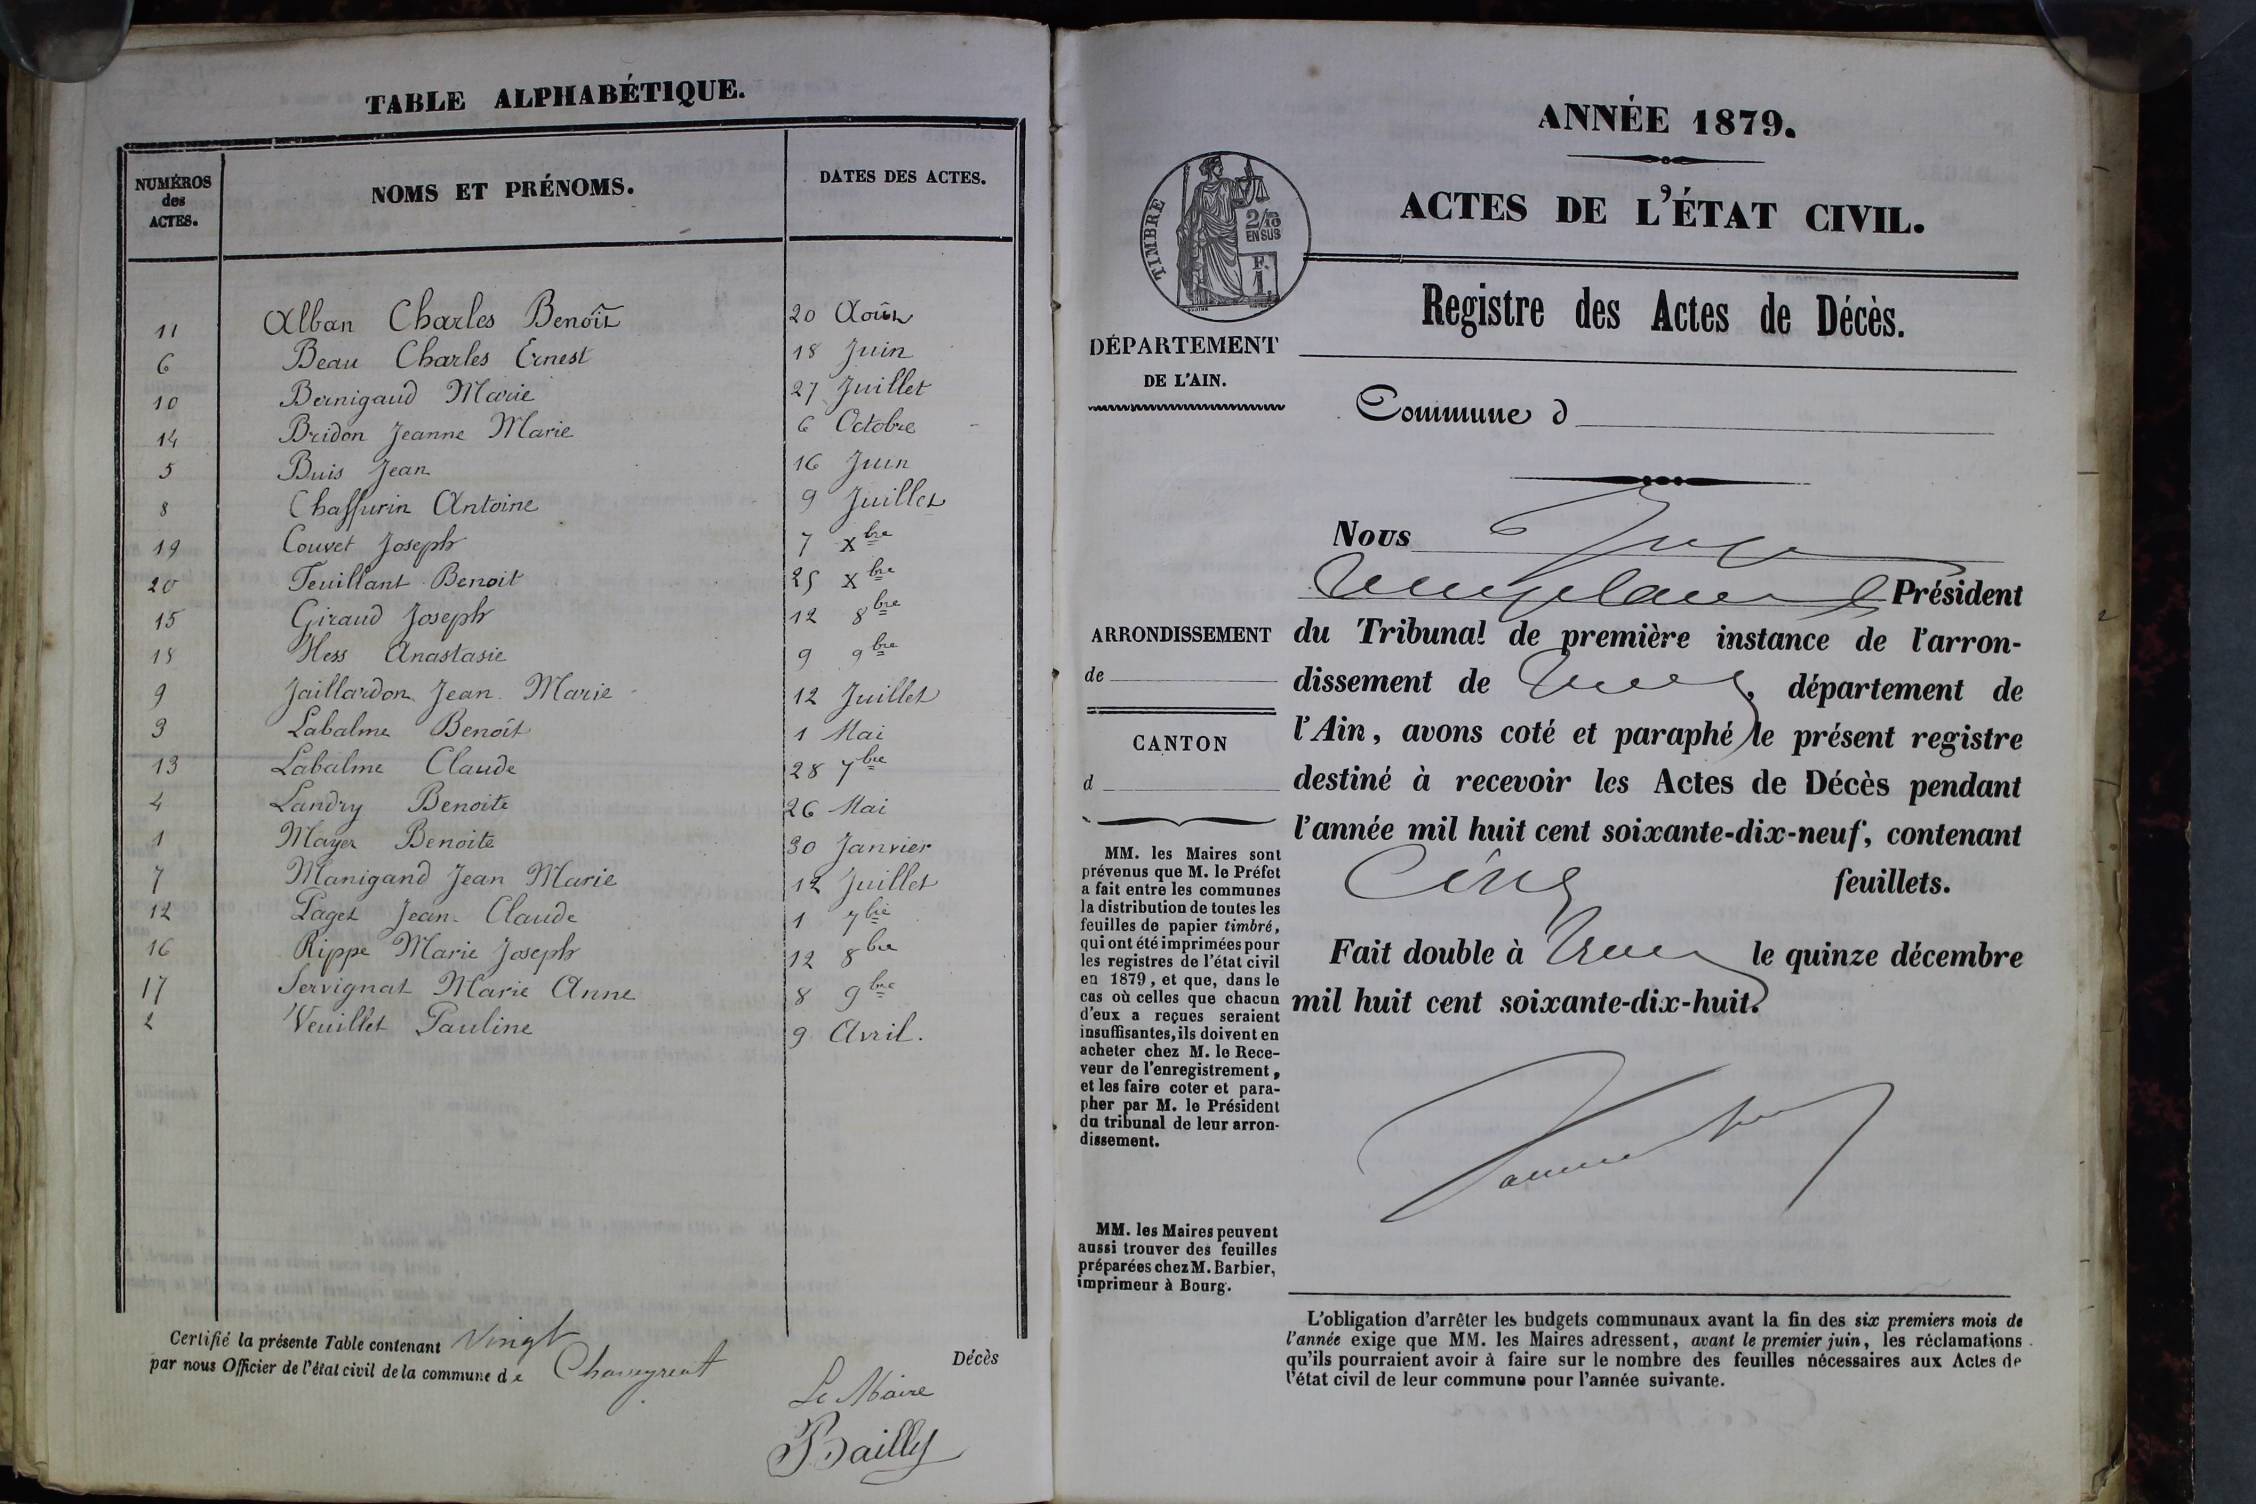 TABLE ALPHABÉTIQUE.
NUMÉROS des ACTES. NOMS ET PRÉNOMS. DATES DES ACTES.
11 Alban Charles Benoît 20 Août
6 Beau Charles Ernest 18 Juin
10 Bernigaud Marie 27 Juillet
14 Bridon Jeanne Marie 6 Octobre
5 Buis Jean 16 Juin
8 Chaffurin Antoine 9 Juillet
19 Couvet Joseph 7 Xbre
20 Feuillant Benoit 25 Xbre
15 Giraud Joseph 12 8bre
18 Hess Anastasie 9 9bre
9 Jaillardon Jean Marie 12 Juillet
3 Labalme Benoît 1 Mai
13 Labalme Claude 28 7bre
4 Landry Benoite 26 Mai
1 Mayer Benoite 30 Janvier
7 Manigand Jean Marie 12 Juillet
12 Paget Jean Claude 1 7bre
16 Rippe Marie Joseph 12 8bre
17 Servignat Marie Anne 8 9bre
2 Veuillet Pauline 9 Avril.
Certifié la présente Table contenant Vingt Décès
par nous Officier de l'état civil de la commune de Chaveyriat
Le Maire
Bailly
ANNÉE 1879.
ACTES DE L'ÉTAT CIVIL.
TIMBRE
2/10
EN SUS
F.
1.
Registre des Actes de Décès.
DÉPARTEMENT
DE L'AIN.
Commune d
Nous Juge
Président
ARRONDISSEMENT
de
CANTON
d
du Tribunal de première instance de l'arron-
dissement de , département de
l'Ain, avons coté et paraphé le présent registre
destiné à recevoir les Actes de Décès pendant
l'année mil huit cent soixante-dix-neuf, contenant
Cinq feuillets.
Fait double à le quinze décembre
mil huit cent soixante-dix-huit.
MM. les Maires sont
prévenus que M. le Préfet
a fait entre les communes
la distribution de toutes les
feuilles de papier timbré,
qui ont été imprimées pour
les registres de l'état civil
en 1879, et que, dans le
cas où celles que chacun
d'eux a reçues seraient
insuffisantes, ils doivent en
acheter chez M. le Rece-
veur de l'enregistrement,
et les faire coter et para-
pher par M. le Président
du tribunal de leur arron-
dissement.
MM. les Maires peuvent
aussi trouver des feuilles
préparées chez M. Barbier,
imprimeur à Bourg.
L'obligation d'arrêter les budgets communaux avant la fin des six premiers mois de
l'année exige que MM. les Maires adressent, avant le premier juin, les réclamations
qu'ils pourraient avoir à faire sur le nombre des feuilles nécessaires aux Actes de
l'état civil de leur commune pour l'année suivante.